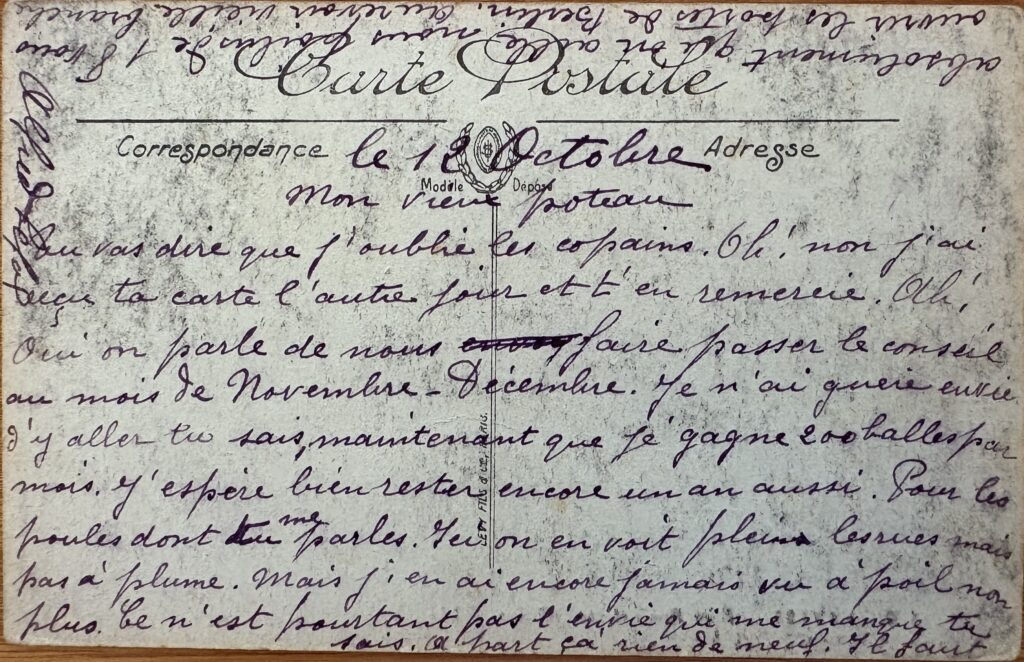 Carte Postale
Correspondance
Adresse
Modèle Déposé
LEVY FILS & CIE, PARIS.
le 12 Octobre
Mon vieux poteau
Tu vas dire que j'oublie les copains. Oh! non j'ai
reçu ta carte l'autre jour et t'en remercie. Ah!
Oui on parle de nous envoy faire passer le conseil
au mois de Novembre - Décembre. Je n'ai guere envie
d'y aller tu sais, maintenant que je gagne 200 balles par
mois. J'espère bien rester encore un an aussi. Pour les
poules dont tu me parles. Ici on en voit plein les rues mais
pas à plume. Mais j'en ai encore jamais vu à poil non
plus. Ce n'est pourtant pas l'envie qui me manque tu
sais. A part ça rien de neuf. Il faut
absolument qu'on aille nous poilus de 18 vous
ouvrir les portes de Berlin. Aurevoir vieille branche